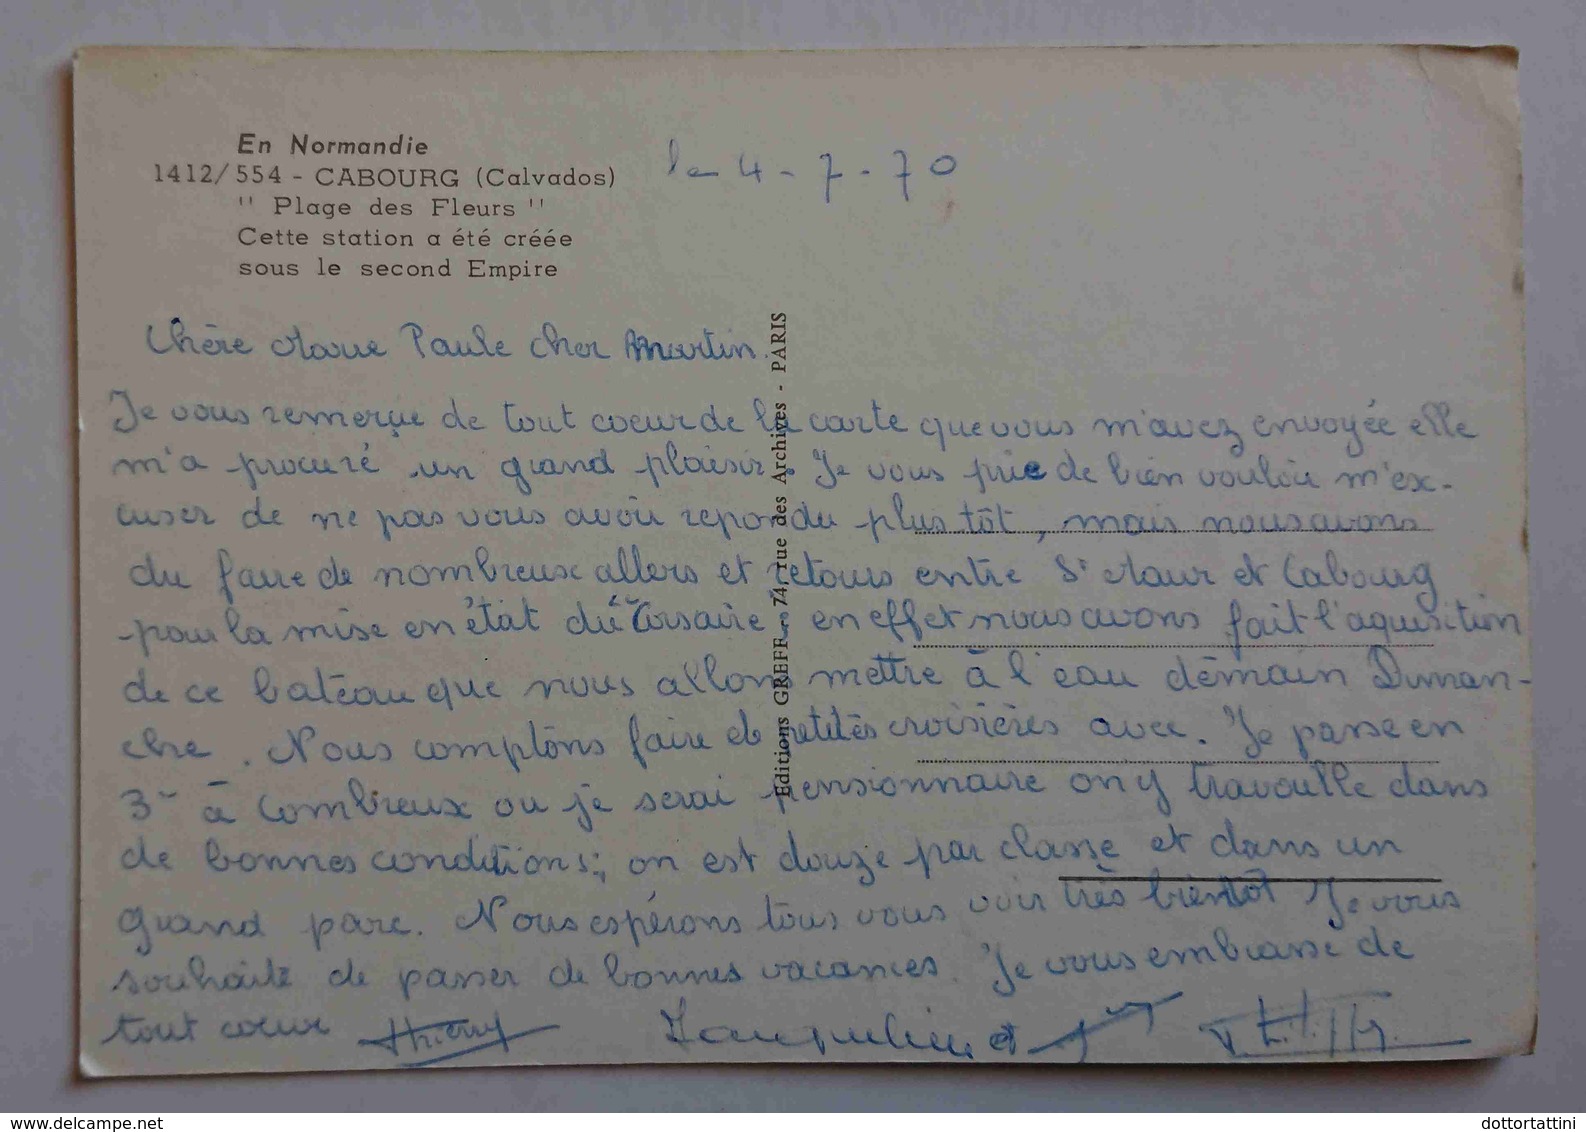 En Normandie
1412/554 - CABOURG (Calvados)
" Plage des Fleurs "
Cette station a été créée
sous le second Empire
le 4-7-70
Chère Marie Paule cher Martin.
Je vous remerçie de tout coeur de la carte que vous m'avez envoyée elle
m'a procuré un grand plaisir. Je vous prie de bien vouloir m'ex-
cuser de ne pas vous avoir repondu plus tôt, mais nous avons
du faire de nombreux allers et retours entre St Maur et Cabourg
pour la mise en état du "Corsaire" en effet nous avons fait l'aquisition
de ce bateau que nous allons mettre à l'eau demain Diman-
che. Nous comptons faire de petites croisières avec. Je passe en
3e à Combreux ou je serai pensionnaire on y travaille dans
de bonnes conditions; on est douze par classe et dans un
grand parc. Nous espérons tous vous voir très bientôt Je vous
souhaite de passer de bonnes vacances. Je vous embrasse de
tout coeur Thierry Jacqueline et
Editions GREFF - 74, rue des Archives - PARIS
dottortattini